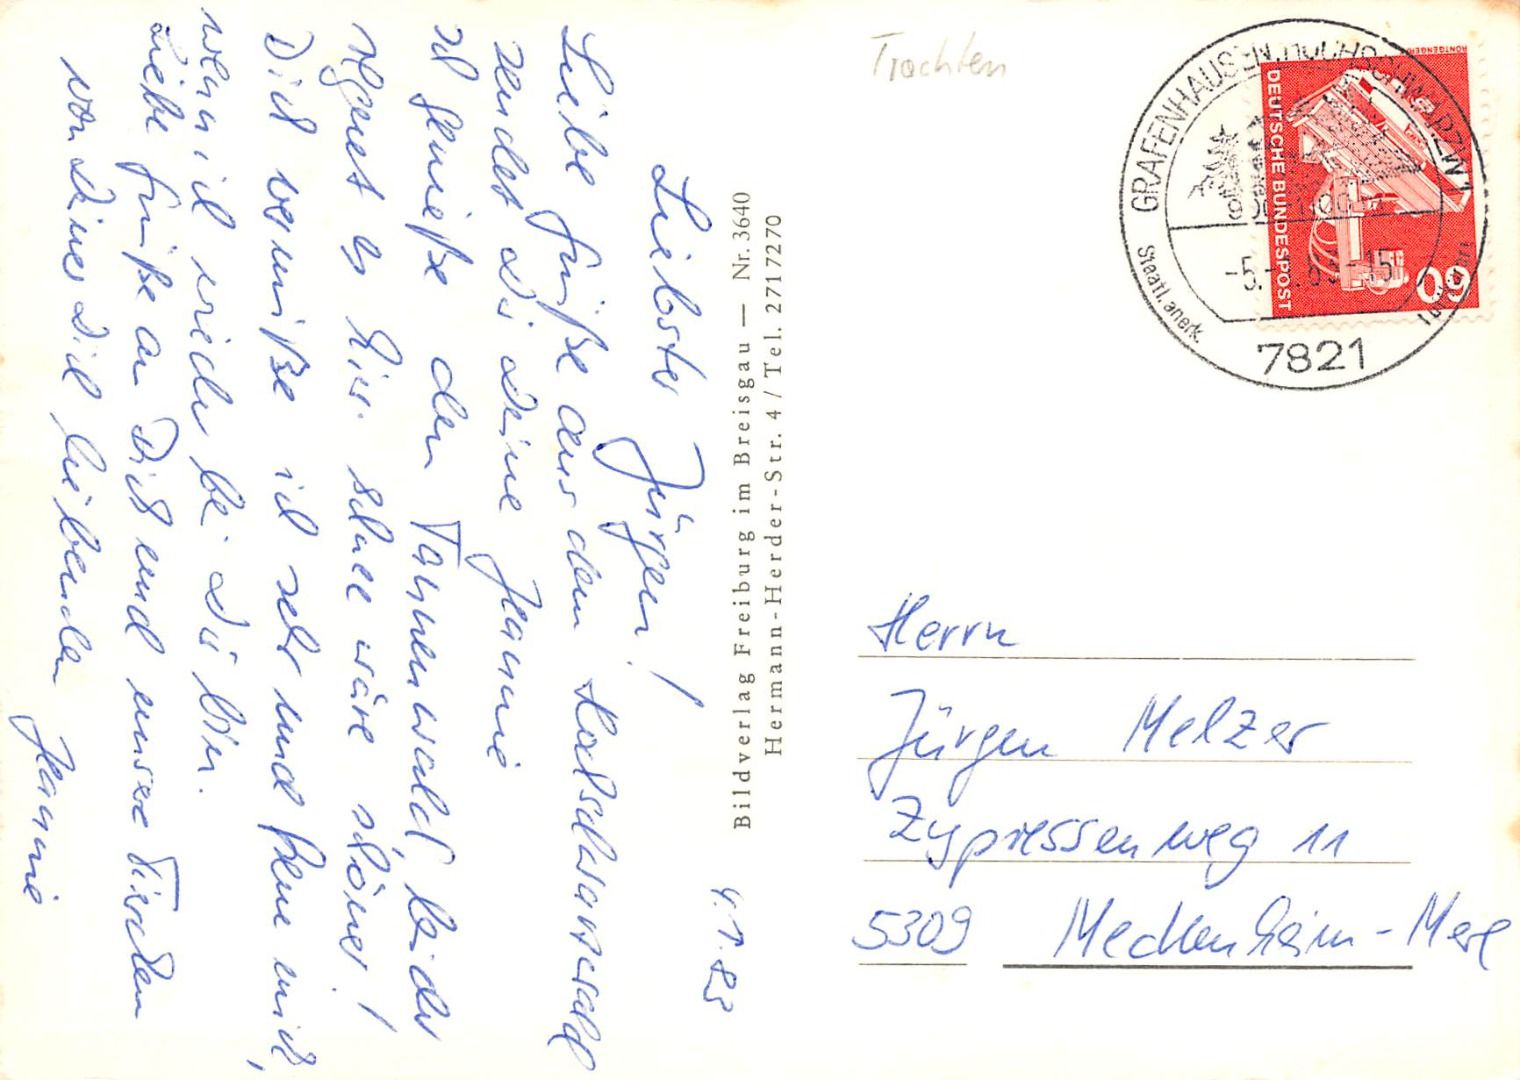 4.1.83
Liebster Jürgen!
Liebe Grüße aus dem Hochschwarzwald
sendet Dir Deine Jeannie
Ich genieße den Tannenwald leider
regnet es hier. Schnee wäre schöner!
Dich vermiße ich sehr und freue mich,
wenn ich wieder bei Dir bin.
Liebe Grüße an Dich und unsere
von Deiner Dich liebenden Jeannie
Bildverlag Freiburg im Breisgau — Nr. 3640
Hermann-Herder-Str. 4 / Tel. 2717270
Trachten
GRAFENHAUSEN, HOCHSCHWARZW 1
900-1100
-5.-1.83-15
Staatl. anerk.
7821
DEUTSCHE BUNDESPOST
80
Herrn
Jürgen Melzer
Zypressenweg 11
5309 Meckenheim-Merl